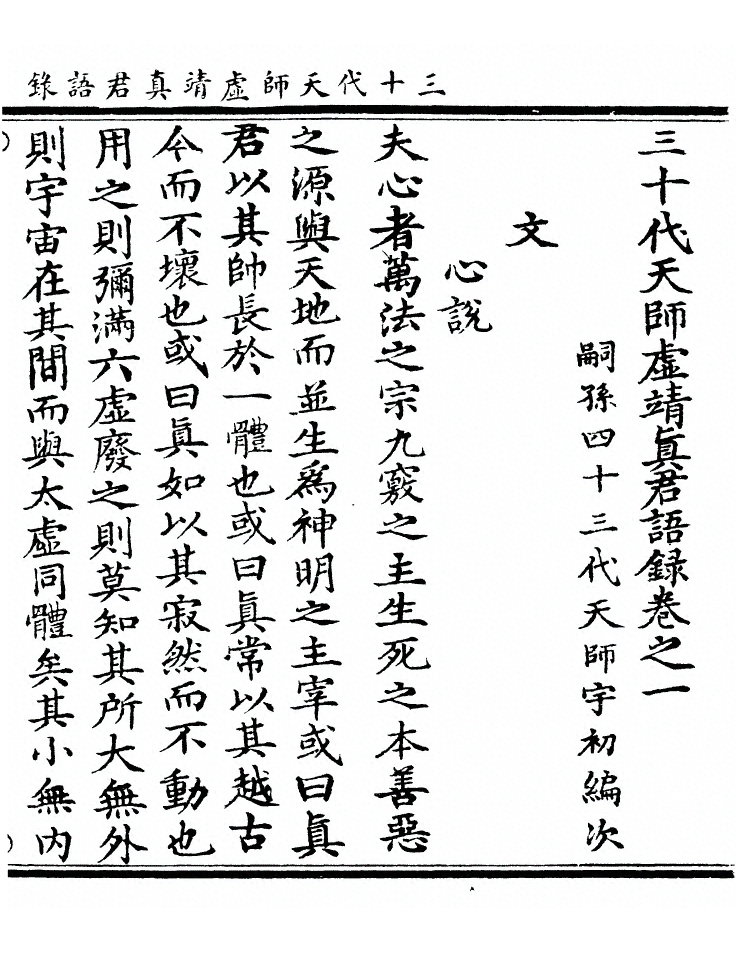 三十代天師虛靖真君語錄
三十代天師虛靖眞君語録卷之一
嗣孫四十三代天師宇初編次
文
心說
夫心者萬法之宗九竅之主生死之本善惡
之源與天地而並生爲神明之主宰或曰眞
君以其帥長於一體也或曰眞常以其越古
今而不壞也或曰眞如以其寂然而不動也
用之則彌滿六虛廢之則莫知其所大無外
則宇宙在其間而與太虛同體矣其小無內